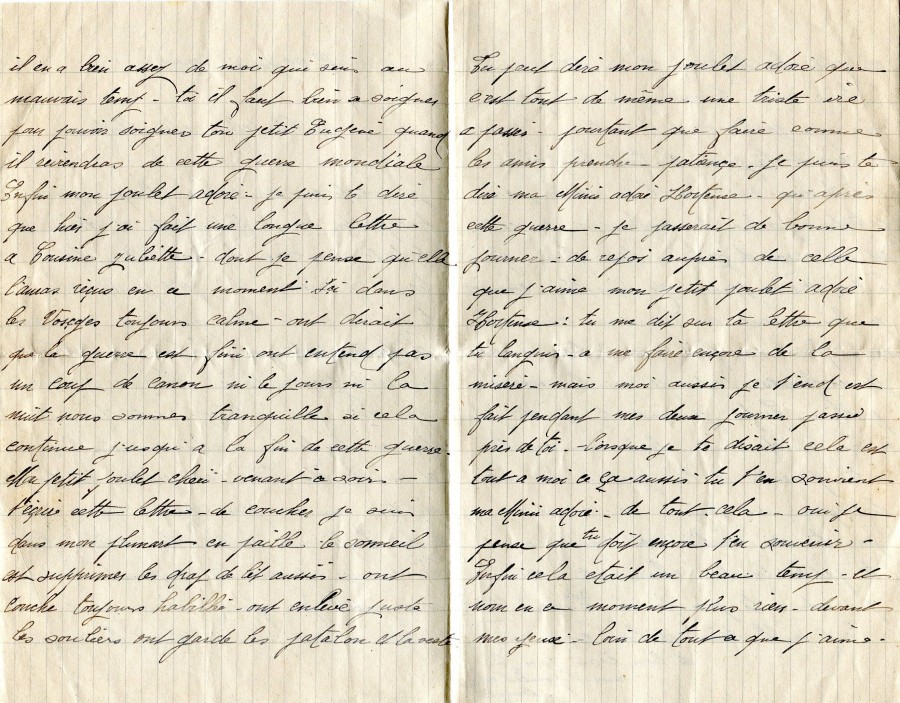 il en a bien assez de moi qui suis au
mauvais temp - toi il faut bien a soigner
pour pouvoir soigner ton petit Eugène quand
il reviendras de cette guerre mondiale
Enfin mon poulet adoré - je puis te dire
que hier j'ai fait une longue lettre
a Cousine Juliette - dont je pense qu'elle
l'auras reçus en ce moment Ici dans
les Vosges toujours calme - ont dirait
que la guerre est fini ont entend pas
un coup de canon ni le jours ni la
nuit nous sommes tranquille si cela
continue jusqui a la fin de cette guerre.
Mon petit poulet chéri - venant ce soir -
t'écrire cette lettre - de coucher je suis
dans mon plumart en paille le sommeil
est supprimer les drap de lit aussi - ont
couche toujours habillié - ont enlève juste
les souliers ont garde les patalon et la veste
Tu peut dire mon poulet adoré que
c'est tout de même une triste vie
a passé - pourtant que faire comme
les amis prendre - patiençe. Je puis te
dire ma Mimi adoré Hortense - qu'après
cette guerre - je passerait de bonne
journer - de repos auprès de celle
que j'aime mon petit poulet adoré
Hortense : tu me dit sur ta lettre que
tu languis - a me faire ençore de la
misère - mais moi aussis je t'end est
fait pendant mes deux journer passé
près de toi - lorsque je te disait cela est
tout a moi ce ça aussis tu t'en souvient
ma Mimi adoré - de tout cela - oui je
pense que tu doit ençore t'en souvenir -
Enfin cela était un beau temp - et
nom en ce moment plus rien - devant
mes yeux - loin de tout ce que j'aime -